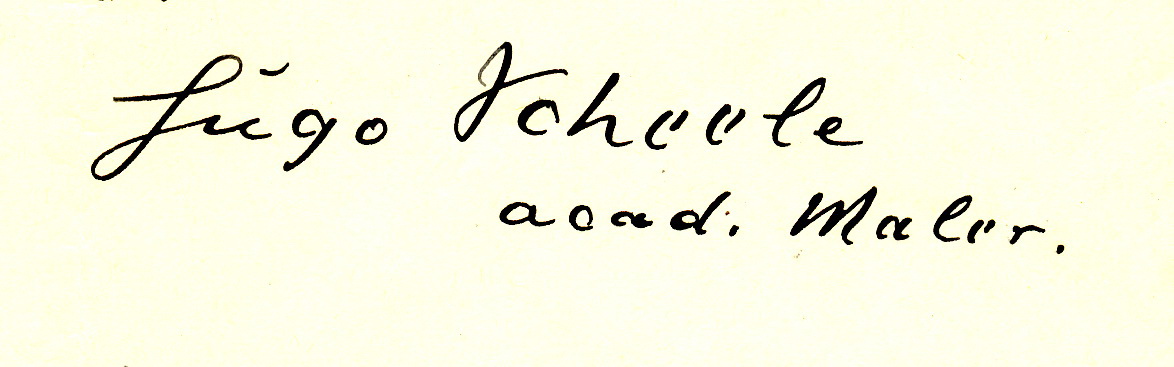 Hugo Scheele
acad. Maler.